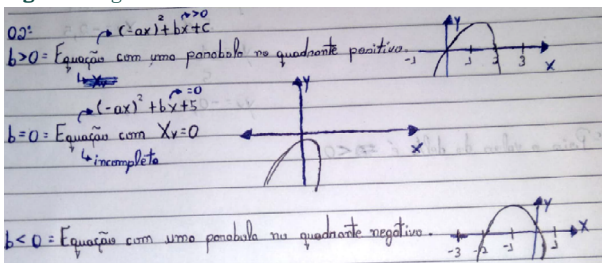 02:
(-ax)² + bx + c >0
b>0 = Equação com uma parabola no quadrante positivo.
Y
-1 1 2 3
X
Xv
(-ax)² + bx + 5 =0
b=0 = Equação com Xv=0
incompleta
Y
X
b<0 = Equação com uma parabola no quadrante negativo.
Y
-3 -2 -1 1
X